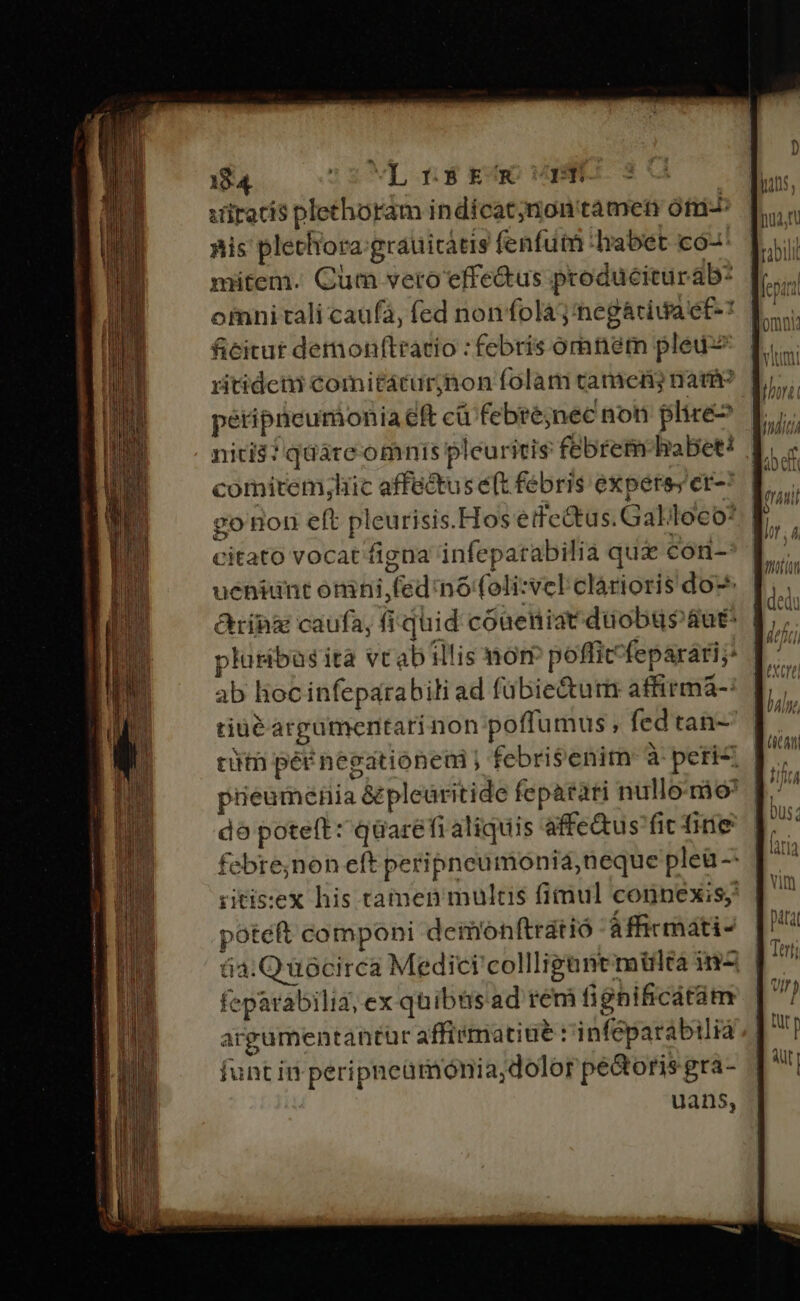 184 LIBER
uitatis plethoram indicat, non tamen om-
nis plethora grauitatis ſenſum habet co-
mitem. Cum vero effectus producitur ab
omni tali cauſa, ſed non ſola, negatiua ef-
ficitur demonſtratio: febris omnem pleu-
ritidem comitatur, non ſolam tamen; nam
peripneumonia eſt cū febre, nec non phre-
nitis: quare omnis pleuritis febrem habet
comitem, hic affectus eſt febris expers, er-
go non eſt pleurisis. Hos effectus. Gal. loco
citato vocat ſigna inſeparabilia quæ con-
ueniunt omni, ſed nō ſoli: vel clarioris do-
ctrinæ cauſa, ſi quid cōueniat duobus aut
pluribus ita vt ab illis non poſſit ſeparari;
ab hoc inſeparabili ad ſubiectum affirma-
tiuè argumentari non poſſumus, ſed tan-
tùm per negationem; febris enim à peri-
pneumenia & pleuritide ſeparari nullo mo
do poteſt: quare ſi aliquis affectus ſit ſine
febre, non eſt peripneumonia, neque pleu-
ritis: ex his tamen multis ſimul connexis,
poteſt componi demonſtratió affirmati-
ua. Quocirca Medici collligunt multa in-
ſeparabilia, ex quibus ad rem ſignificatam
argumentantur affirmatiuè: inſeparabilia
ſunt in peripneumónia, dolor pectoris gra-
uans,